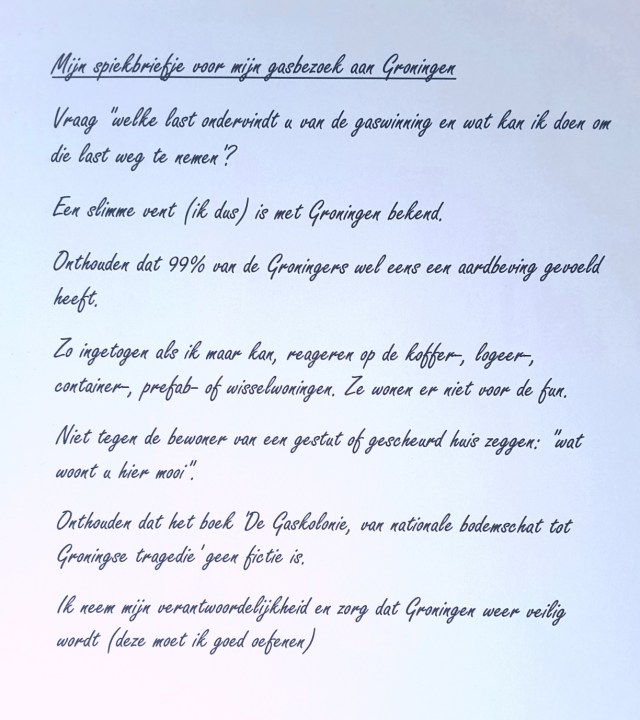 Mijn spiekbriefje voor mijn gasbezoek aan Groningen
Vraag "welke last ondervindt u van de gaswinning en wat kan ik doen om
die last weg te nemen'?
Een slimme vent (ik dus) is met Groningen bekend.
Onthouden dat 99% van de Groningers wel eens een aardbeving gevoeld
heeft.
Zo ingetogen als ik maar kan, reageren op de koffer-, logeer-,
container-, prefab- of wisselwoningen. Ze wonen er niet voor de fun.
Niet tegen de bewoner van een gestut of gescheurd huis zeggen: "wat
woont u hier mooi".
Onthouden dat het boek 'De Gaskolonie, van nationale bodemschat tot
Groningse tragedie' geen fictie is.
Ik neem mijn verantwoordelijkheid en zorg dat Groningen weer veilig
wordt (deze moet ik goed oefenen)